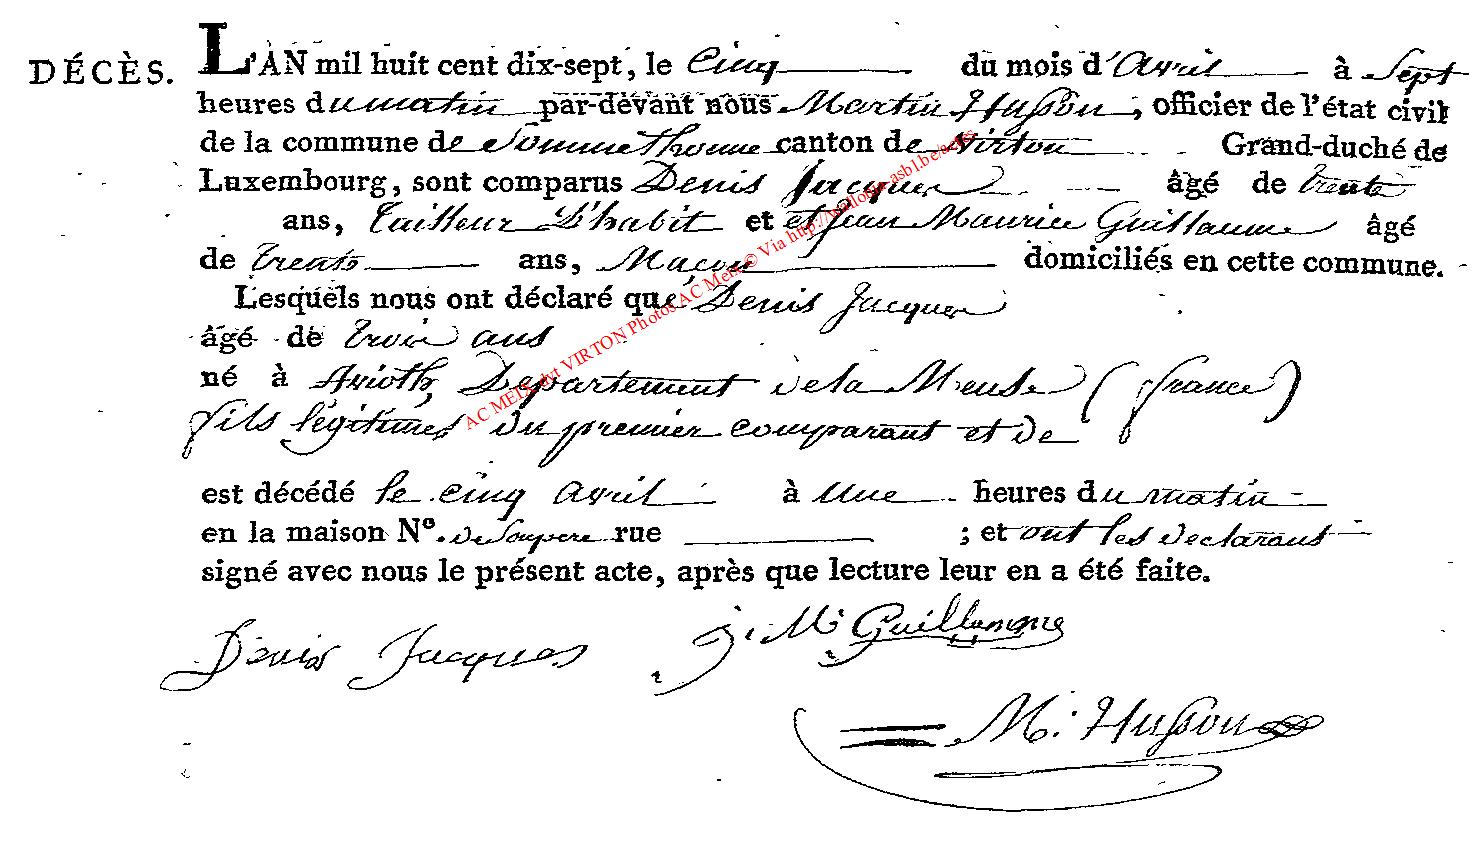 DÉCÈS.
L'AN mil huit cent dix-sept, le Cinq du mois d'Avril à Sept
heures du matin par-devant nous Martin Husson, officier de l'état civil
de la commune de Sommethonne canton de Virton Grand-duché de
Luxembourg, sont comparus Denis Jacques âgé de trente
ans, tailleur d'habit et et Jean Maurice Guillaume âgé
de trente ans, Maçon domiciliés en cette commune.
Lesquels nous ont déclaré que Denis Jacques
âgé de trois ans
né à Avioth, Departement de la Meuse (france)
fils légitimes du premier comparant et de
est décédé le cinq avril à une heures du matin
en la maison N°. de Son pere rue ; et ont les declarans
signé avec nous le présent acte, après que lecture leur en a été faite.
Denis Jacques J. M. Guillaume
M. Husson
AC MEIX dvt VIRTON Photos AC Meix © Via http://wallonia.asbl.be/actes